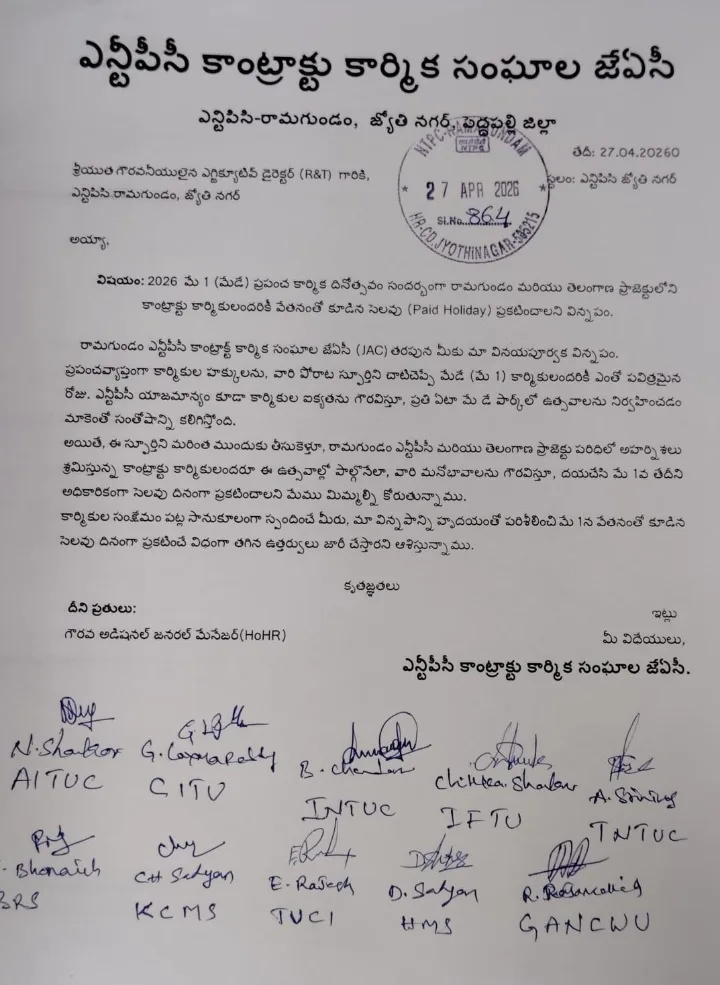 ఎన్టీపీసీ కాంట్రాక్టు కార్మిక సంఘాల జేఏసీ
ఎన్టిపిసి-రామగుండం, జ్యోతి నగర్, పెద్దపల్లి జిల్లా
తేదీ: 27.04.20260
శ్రీయుత గౌరవనీయులైన ఎగ్జిక్యూటివ్ డైరెక్టర్ (R&T) గారికి,
స్థలం: ఎన్టిపిసి జ్యోతి నగర్
ఎన్టిపిసి.రామగుండం, జ్యోతి నగర్
NTPC-RAMAGUNDAM
NTPC
27 APR 2026
Sl.No. 864
HR-CD.JYOTHINAGAR-505215
అయ్యా,
విషయం: 2026 మే 1 (మేడే) ప్రపంచ కార్మిక దినోత్సవం సందర్భంగా రామగుండం మరియు తెలంగాణ ప్రాజెక్టులోని
కాంట్రాక్టు కార్మికులందరికీ వేతనంతో కూడిన సెలవు (Paid Holiday) ప్రకటించాలని విన్నపం.
రామగుండం ఎన్టీపీసీ కాంట్రాక్ట్ కార్మిక సంఘాల జేఏసీ (JAC) తరపున మీకు మా వినయపూర్వక విన్నపం.
ప్రపంచవ్యాప్తంగా కార్మికుల హక్కులను, వారి పోరాట స్ఫూర్తిని చాటిచెప్పే మేడే (మే 1) కార్మికులందరికీ ఎంతో పవిత్రమైన
రోజు. ఎన్టీపీసీ యాజమాన్యం కూడా కార్మికుల ఐక్యతను గౌరవిస్తూ, ప్రతి ఏటా మే డే పార్క్‌లో ఉత్సవాలను నిర్వహించడం
మాకెంతో సంతోషాన్ని కలిగిస్తోంది.
అయితే, ఈ స్ఫూర్తిని మరింత ముందుకు తీసుకెళ్తూ, రామగుండం ఎన్టీపీసీ మరియు తెలంగాణ ప్రాజెక్టు పరిధిలో అహర్నిశలు
శ్రమిస్తున్న కాంట్రాక్టు కార్మికులందరూ ఈ ఉత్సవాల్లో పాల్గొనేలా, వారి మనోభావాలను గౌరవిస్తూ, దయచేసి మే 1వ తేదీని
అధికారికంగా సెలవు దినంగా ప్రకటించాలని మేము మిమ్మల్ని కోరుతున్నాము.
కార్మికుల సంక్షేమం పట్ల సానుకూలంగా స్పందించే మీరు, మా విన్నపాన్ని హృదయంతో పరిశీలించి మే 1న వేతనంతో కూడిన
సెలవు దినంగా ప్రకటించే విధంగా తగిన ఉత్తర్వులు జారీ చేస్తారని ఆశిస్తున్నాము.
కృతజ్ఞతలు
దీని ప్రతులు:
ఇట్లు
గౌరవ అడిషనల్ జనరల్ మేనేజర్(HoHR)
మీ విధేయులు,
ఎన్టీపీసీ కాంట్రాక్టు కార్మిక సంఘాల జేఏసీ.
N. Shankar
AITUC
CITU
B. Chandar
INTUC
IFTU
TNTUC
BRS
CH Satyan
KCMS
E. Rajesh
TUCI
D. Satyan
HMS
GANCWU